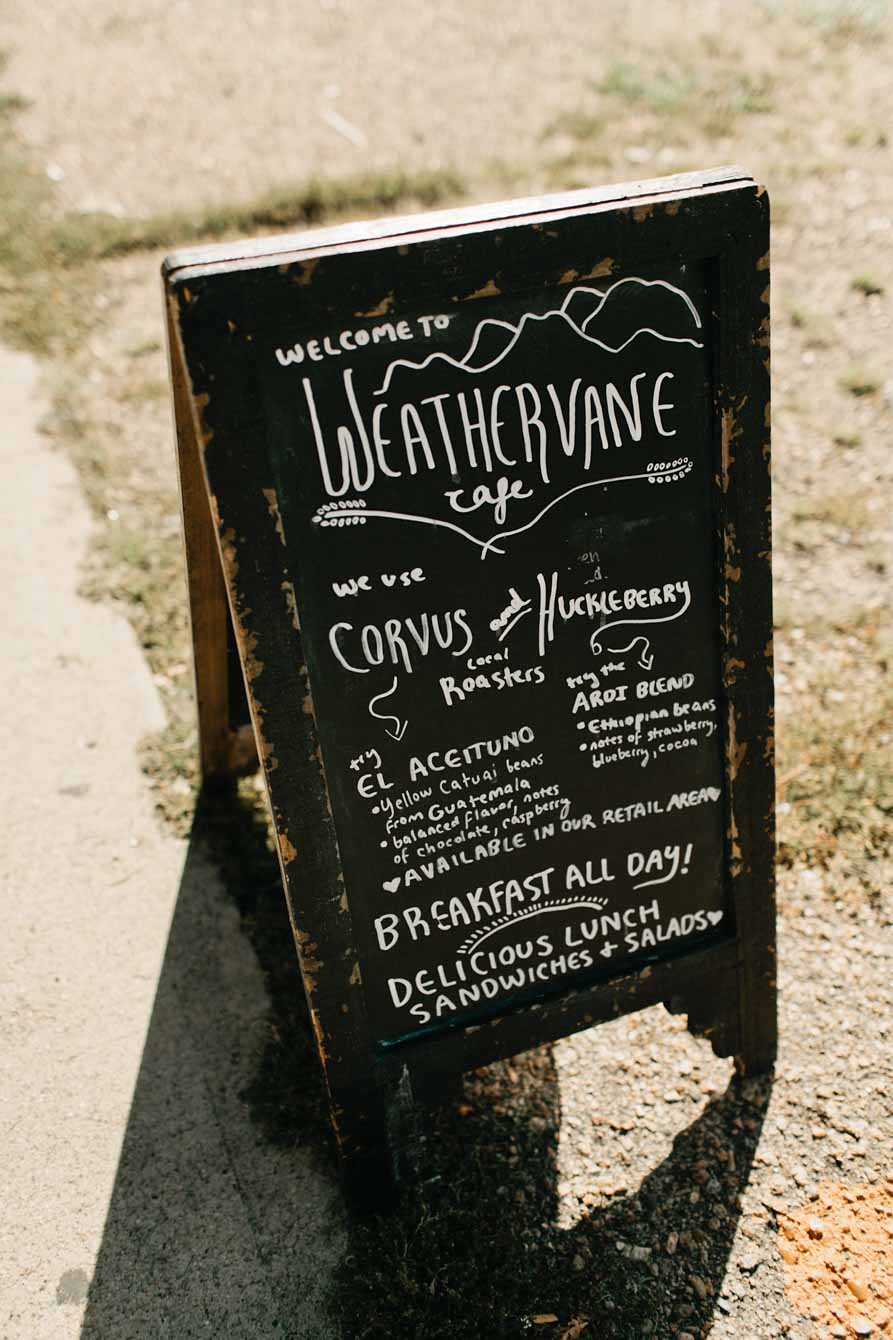 WELCOME TO
WEATHERVANE
cafe
we use
CORVUS and HUCKLEBERRY
Local
Roasters
try
EL ACEITUNO
• Yellow Catuai beans
from Guatemala
• balanced flavor, notes
of chocolate, raspberry
try the
ARDI BLEND
• Ethiopian beans
• notes of strawberry,
blueberry, cocoa
♥ AVAILABLE IN OUR RETAIL AREA ♥
BREAKFAST ALL DAY!
DELICIOUS LUNCH
SANDWICHES + SALADS ♥